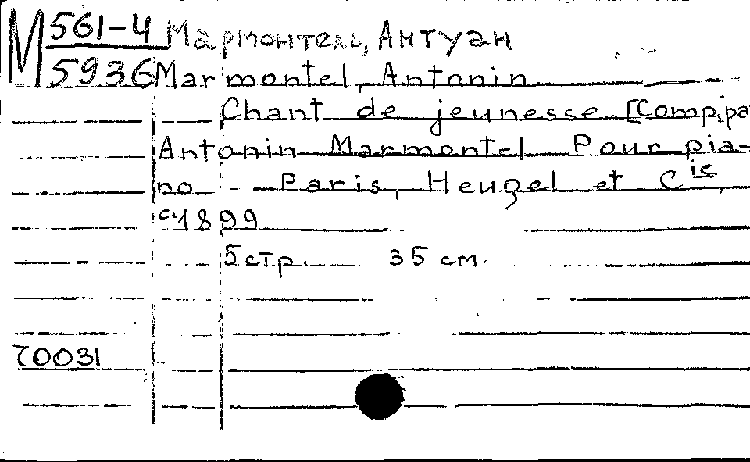 М 561-4 Мармонтель, Антуан
5936 Marmontel, Antonin
Chant de jeunesse [Compipa
Antonin Marmontel Pour pia-
no - Paris, Heugel et Cie,
c.1899
5 стр. 35 см.
70031